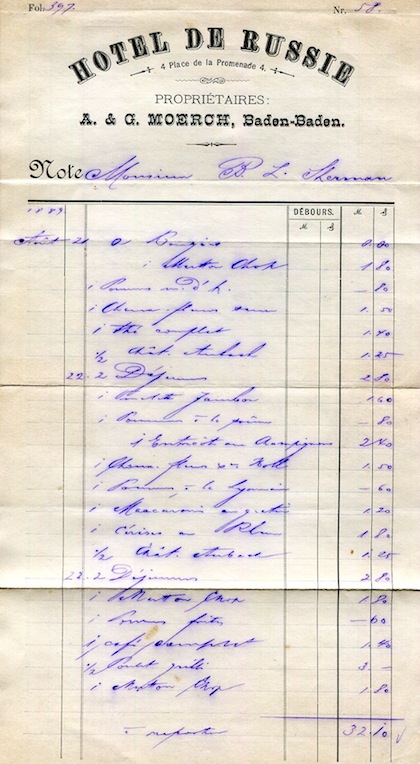 Fol. 397. Nr. 58.
HOTEL DE RUSSIE
4 Place de la Promenade 4.
PROPRIÉTAIRES:
A. & G. MOERCH, Baden-Baden.
Note Monsieur B. L. Sherman
DÉBOURS. M. ₰
M ₰
1889
Août 21
1 Mutton Chop 1 80
1 Pommes m. d'h. — 80
1 Choux-fleurs 1.50
1 thé complet 1.40
1/2 Chât. 1.25
22. 2 Déjeuners 2 80
1 Jambon 1 60
1 Pommes à la — 80
1 Entrecôte aux 2 40
1 Choux-fleurs 1.50
1 Pommes à la Lyonnaise — 60
1 Maccaroni au gratin 1.20
1 Cerises au Rhum 1 80
1/2 Chât. 1.25
23. 2 Déjeuners 2 80
1 Mutton Chop 1.80
1 Pommes frites — 60
1 café complet 1.40
1/2 Poulet grillé 3. —
1 Mutton Chop 1.80
à reporter 32.10